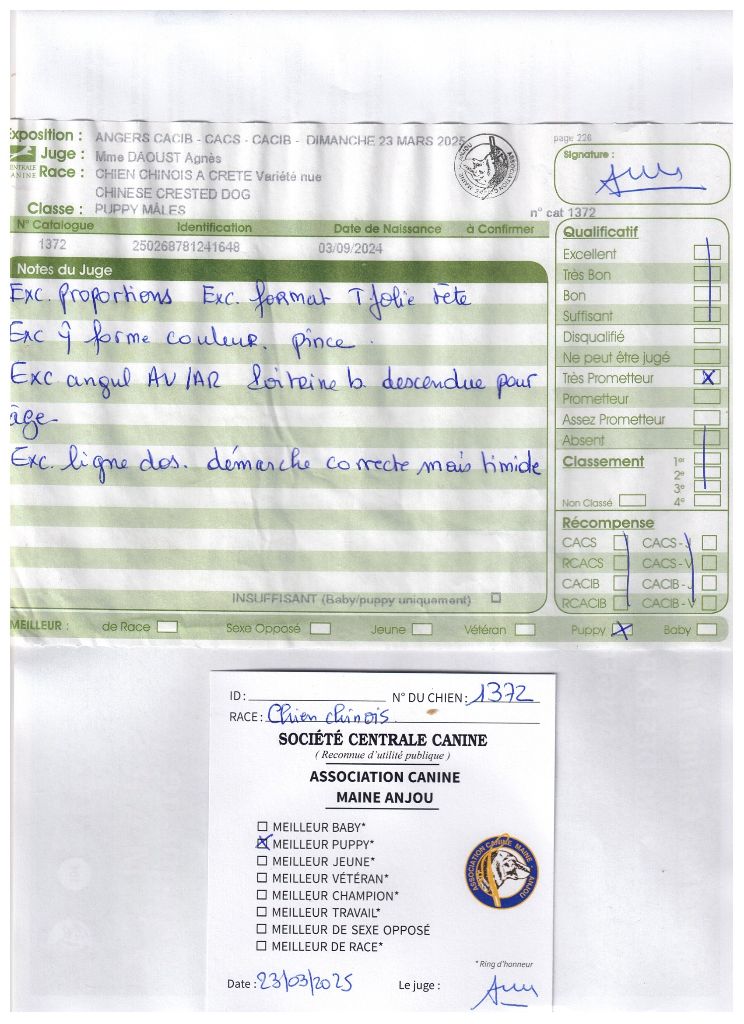 Exposition : ANGERS CACIB - CACS - CACIB - DIMANCHE 23 MARS 2025
page 226
Juge : Mme DAOUST Agnès
CENTRALE CANINE
Race : CHIEN CHINOIS A CRETE Variété nue
CHINESE CRESTED DOG
Classe : PUPPY MÂLES
n° cat 1372
Signature :
N° Catalogue Identification Date de Naissance à Confirmer
1372 250268781241648 03/09/2024
Notes du Juge
Exc. proportions Exc. format T jolie tête
Exc forme couleur. pince.
Exc angul AV/AR Poitrine b. descendue pour
âge
Exc. ligne dos. démarche correcte mais timide
INSUFFISANT (Baby/puppy uniquement)
Qualificatif
Excellent
Très Bon
Bon
Suffisant
Disqualifié
Ne peut être jugé
Très Prometteur X
Prometteur
Assez Prometteur
Absent
Classement 1er
2e
3e
Non Classé 4e
Récompense
CACS CACS-J
RCACS CACS-V
CACIB CACIB-J
RCACIB CACIB-V
MEILLEUR : de Race Sexe Opposé Jeune Vétéran Puppy X Baby
ID : N° DU CHIEN : 1372
RACE : Chien chinois
SOCIÉTÉ CENTRALE CANINE
( Reconnue d'utilité publique )
ASSOCIATION CANINE
MAINE ANJOU
MEILLEUR BABY*
X MEILLEUR PUPPY*
MEILLEUR JEUNE*
MEILLEUR VÉTÉRAN*
MEILLEUR CHAMPION*
MEILLEUR TRAVAIL*
MEILLEUR DE SEXE OPPOSÉ
MEILLEUR DE RACE*
ASSOCIATION CANINE MAINE - ANJOU
* Ring d'honneur
Date : 23/03/2025 Le juge :